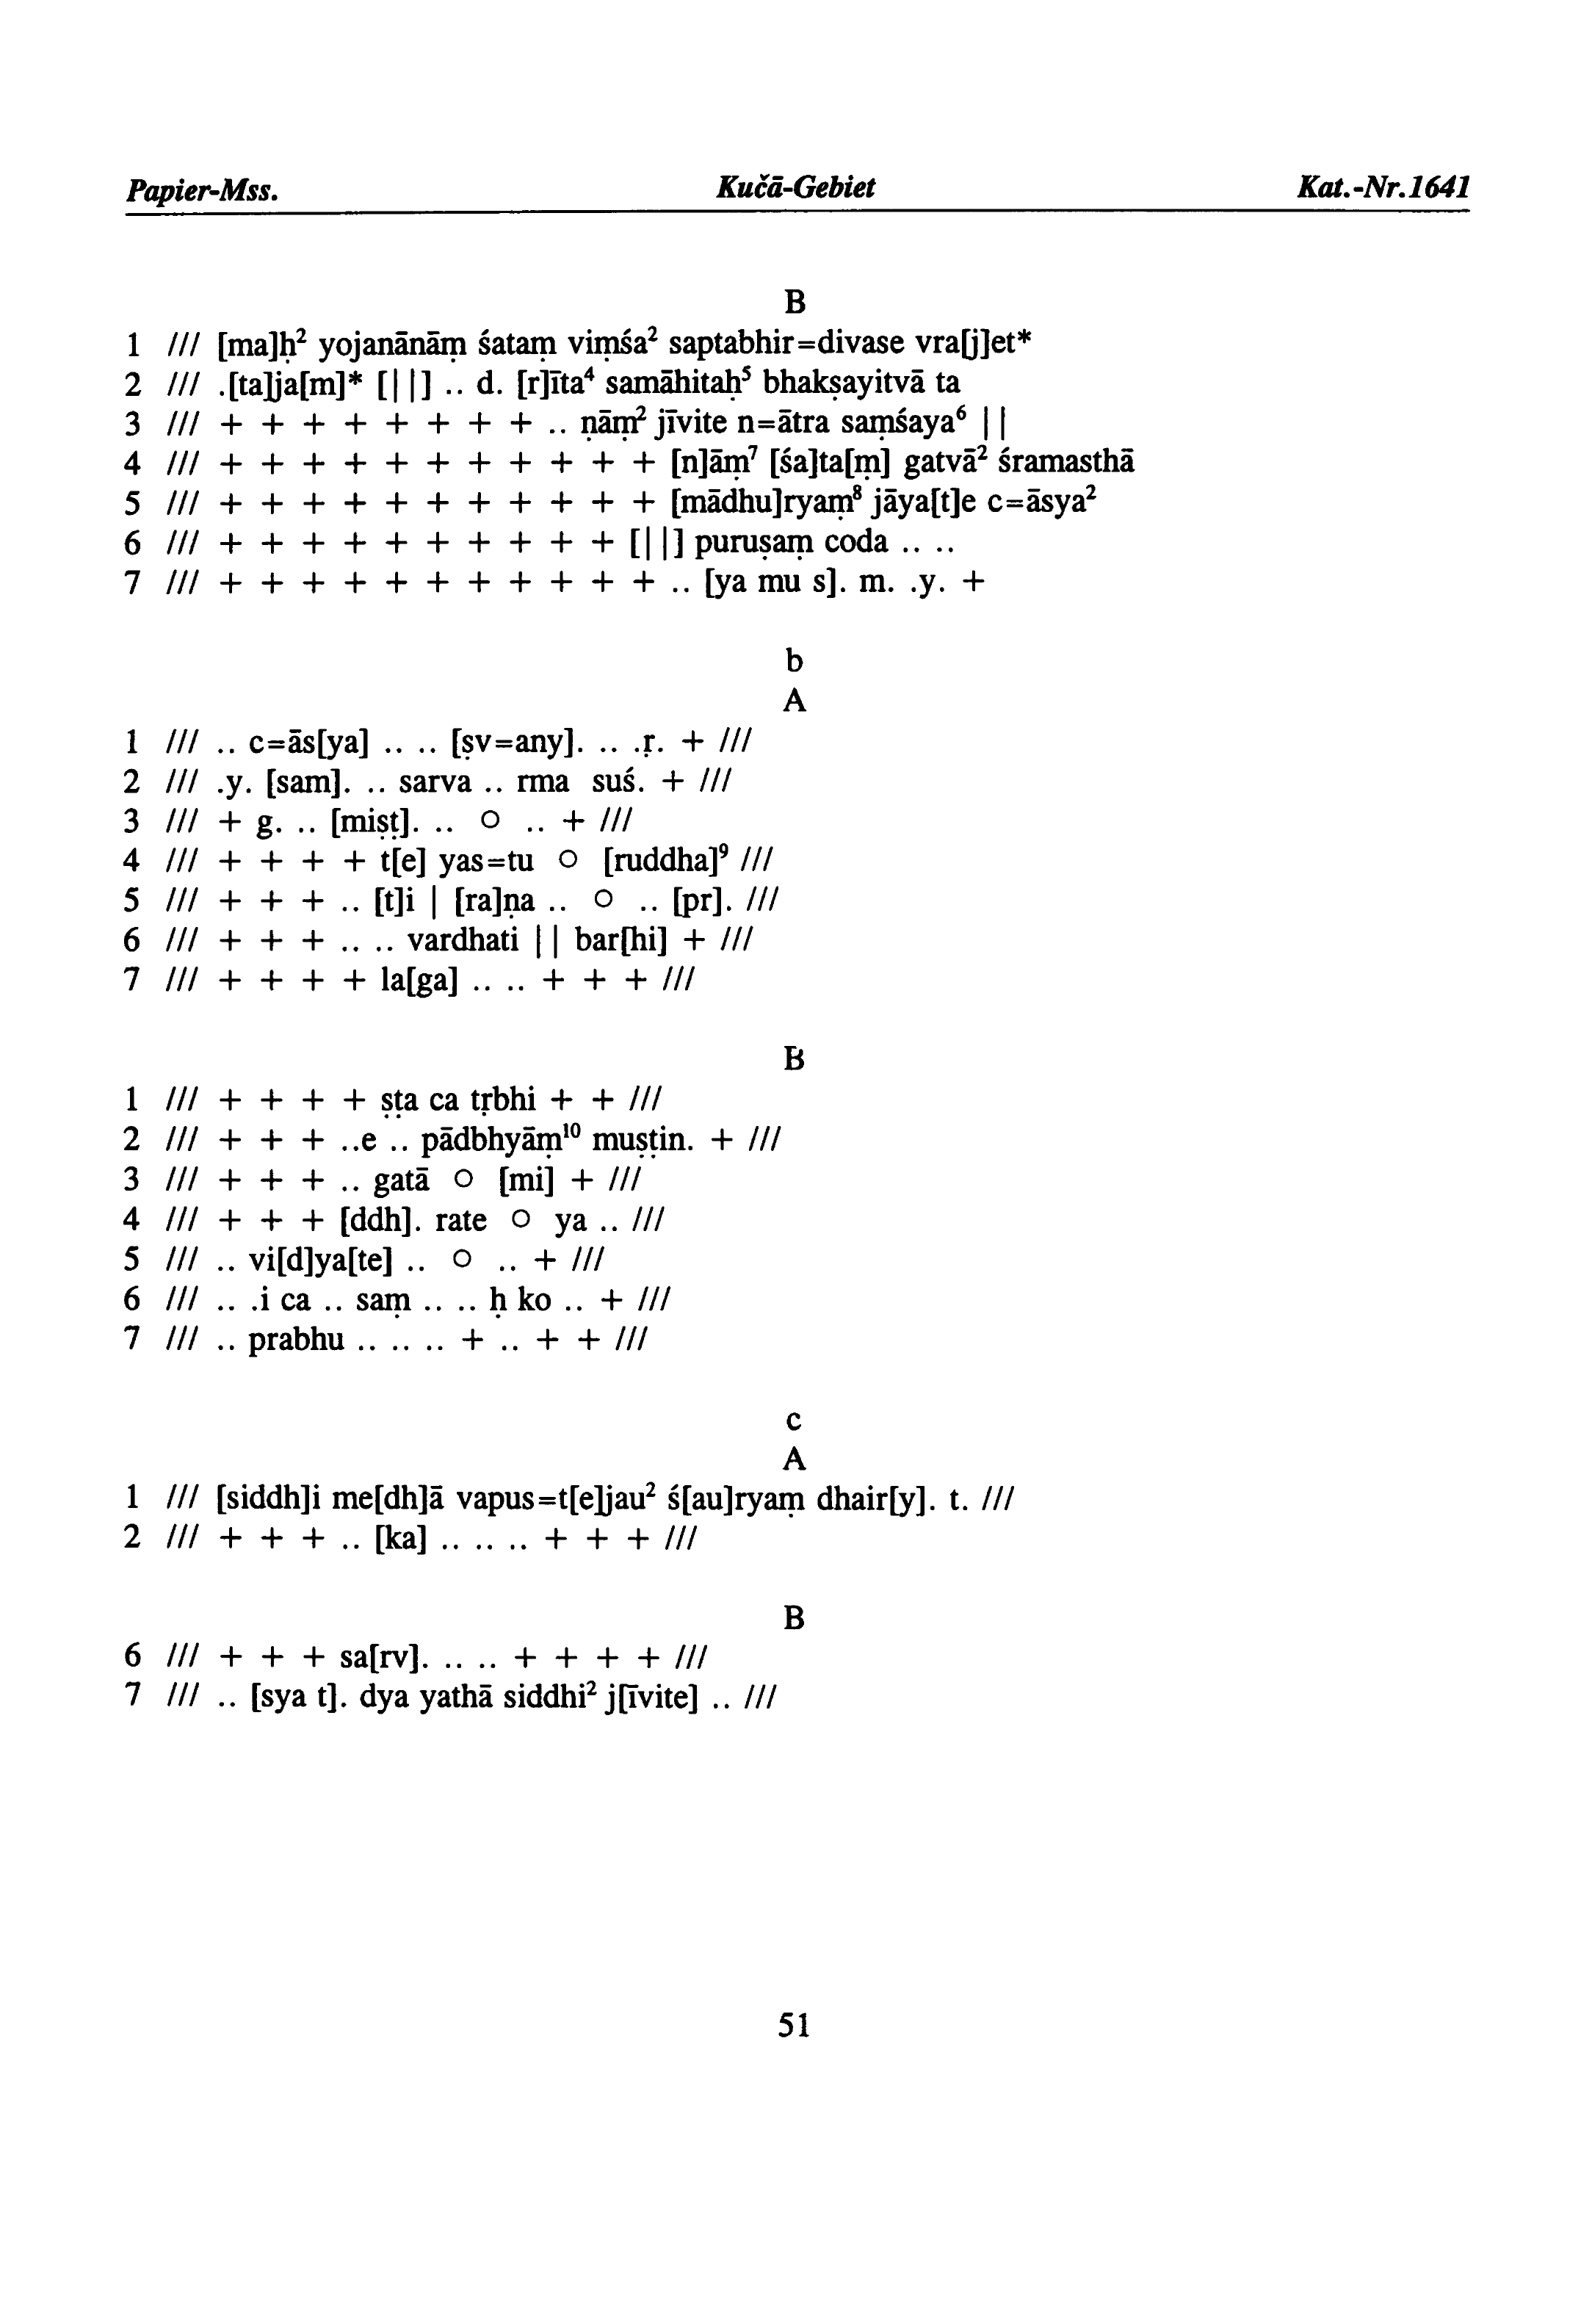 Papier-Mss. Kučā-Gebiet Kat.-Nr.1641
B
1 /// [ma]ḥ² yojanānāṃ śataṃ viṃśa² saptabhir=divase vra[j]et*
2 /// .[ta]ja[m]* [||] .. d. [r]īta⁴ samāhitaḥ⁵ bhakṣayitvā ta
3 /// + + + + + + + + .. ṇāṃ² jīvite n=ātra saṃśaya⁶ ||
4 /// + + + + + + + + + + + [n]āṃ⁷ [śa]ta[ṃ] gatvā² śramasthā
5 /// + + + + + + + + + + + [mādhu]ryaṃ⁸ jāya[t]e c=āsya²
6 /// + + + + + + + + + + [||] puruṣaṃ coda .. ..
7 /// + + + + + + + + + + + .. [ya mu s]. m. .y. +
b
A
1 /// .. c=ās[ya] .. .. [ṣv=any]. .. .ṛ. + ///
2 /// .y. [sam]. .. sarva .. rma suś. + ///
3 /// + g. .. [miṣṭ]. .. ○ .. + ///
4 /// + + + + t[e] yas=tu ○ [ruddha]⁹ ///
5 /// + + + .. [t]i | [ra]ṇa .. ○ .. [pr]. ///
6 /// + + + .. .. vardhati || bar[hi] + ///
7 /// + + + + la[ga] .. .. + + + ///
B
1 /// + + + + ṣṭa ca tṛbhi + + ///
2 /// + + + ..e .. pādbhyāṃ¹⁰ muṣṭin. + ///
3 /// + + + .. gatā ○ [mi] + ///
4 /// + + + [ddh]. rate ○ ya .. ///
5 /// .. vi[d]ya[te] .. ○ .. + ///
6 /// .. .i ca .. saṃ .. .. ḥ ko .. + ///
7 /// .. prabhu .. .. .. + .. + + ///
c
A
1 /// [siddh]i me[dh]ā vapus=t[e]jau² ś[au]ryaṃ dhair[y]. t. ///
2 /// + + + .. [ka] .. .. .. + + + ///
B
6 /// + + + sa[rv]. .. .. + + + + ///
7 /// .. [sya t]. dya yathā siddhi² j[īvite] .. ///
51